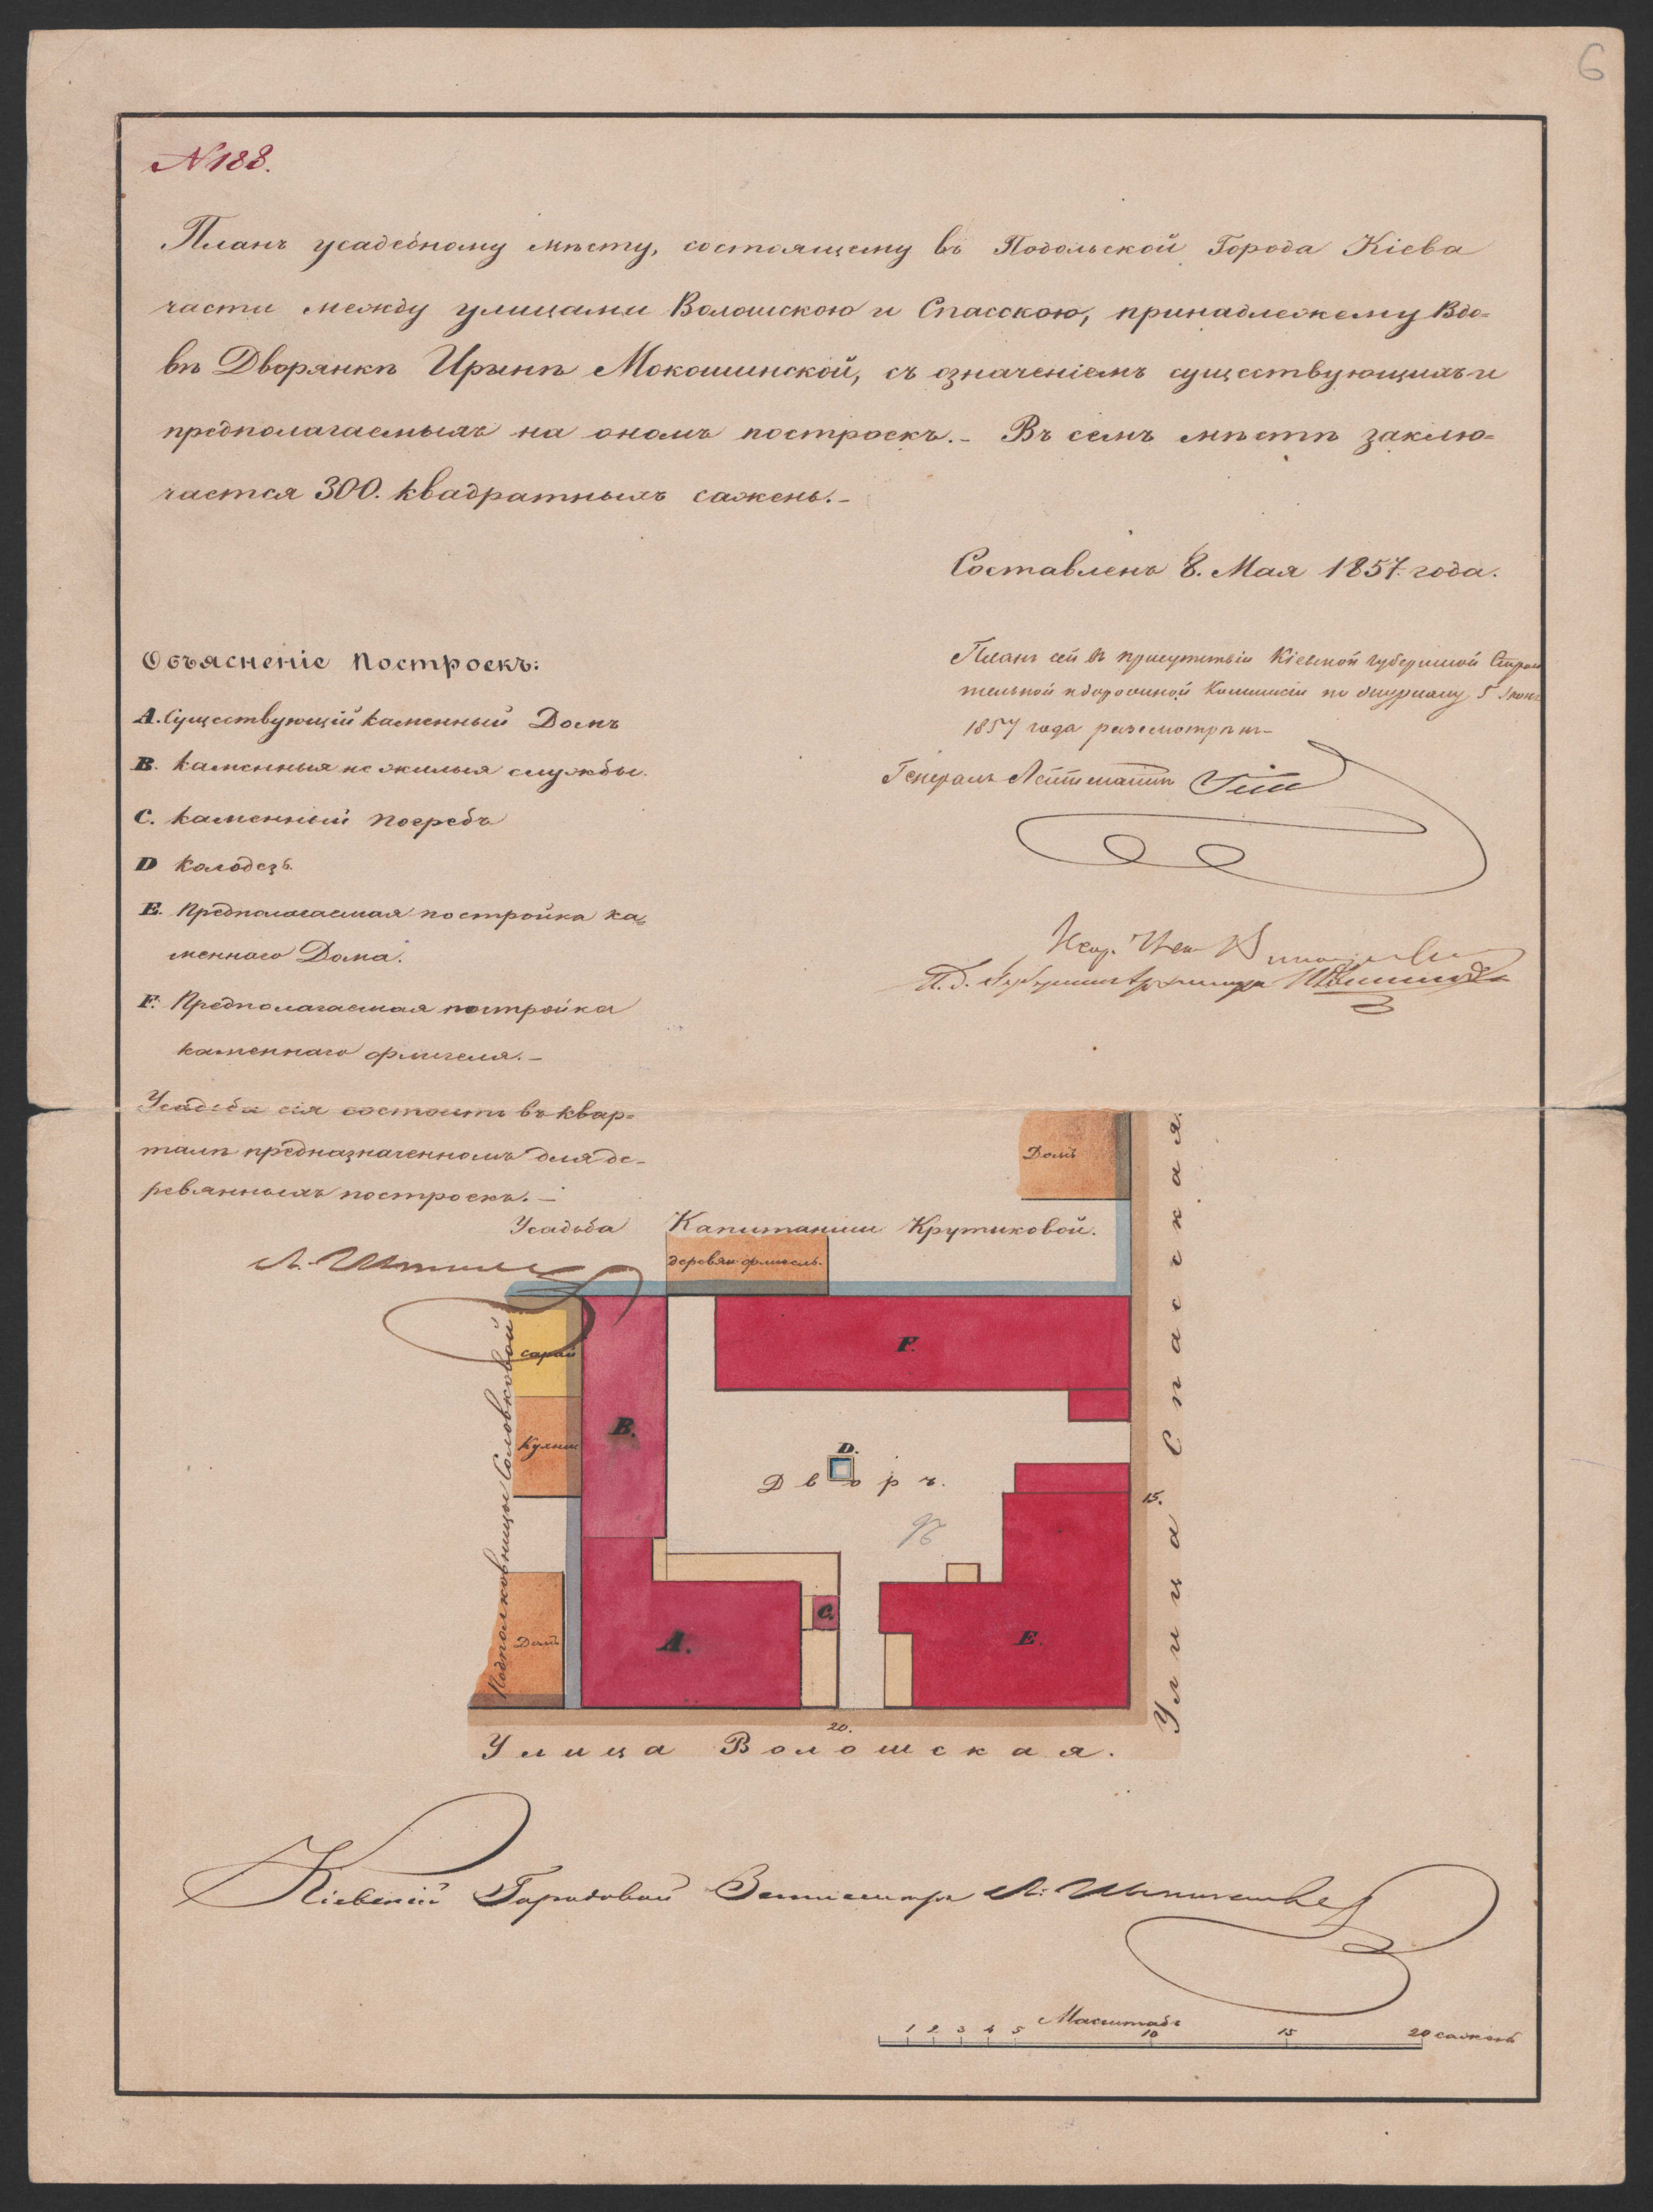 6
N 188.
Планъ усадебному мѣсту, состоящему въ Подольской Города Кіева
части между улицами Волошскою и Спасскою, принадлежему Вдо=
вѣ Дворянкѣ Ирынѣ Мокошинской, съ означеніемъ существующихъ и
предполагаемыхъ на ономъ построекъ.- Въ семъ мѣстѣ заклю=
чается 300. квадратныхъ сажень.-
Составленъ 8. Мая 1857 года.
Объясненіе Построекъ:
A. Существующій каменный Домъ
B. Каменныя не жилыя службы.
C. Каменный погребъ
D Колодезь.
E. Предполагаемая постройка ка=
меннаго Дома.
F. Предполагаемая постройка
каменнаго флигеля.-
Усадьба сія состоитъ въ квар=
талѣ предназначенномъ для де-
ревянныхъ построекъ.-
Планъ сей въ присутствіи Кіевской Губернской Строи
тельной и дорожной Коммисіи по журналу 5 Іюня
1857 года разсмотрѣнъ-
Генералъ Лейтенантъ
Домъ
Усадьба Капитанши Крутиковой.
деревян. флигель.
сарай
Кухни
Домъ
Подполковницы Соловковой
B.
F.
D.
Дворъ.
A.
C.
E.
15.
20.
Улица Спасская.
Улица Волошская.
Кіевскій Городовой Землемеръ
Масштабъ
1 2 3 4 5 10 15 20 сажень